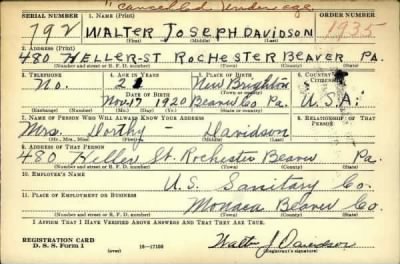 "Cancelled. Under age.
SERIAL NUMBER 1. NAME (Print) ORDER NUMBER
792 WALTER JOSEPH DAVIDSON 1935
(First) (Middle) (Last)
2. ADDRESS (Print)
480 HELLER-ST ROCHESTER BEAVER PA.
(Number and street or R. F. D. number) (Town) (County) (State)
3. TELEPHONE 4. AGE IN YEARS 5. PLACE OF BIRTH 6. COUNTRY OF CITIZENSHIP
No. 2 New Brighton
DATE OF BIRTH (Town or county)
Nov. 17 1920 Beaver Co Pa. U.S.A.
(Exchange) (Number) (Mo.) (Day) (Yr.) (State or country)
7. NAME OF PERSON WHO WILL ALWAYS KNOW YOUR ADDRESS 8. RELATIONSHIP OF THAT PERSON
Mrs. Dorthy - Davidson
(Mr., Mrs., Miss) (First) (Middle) (Last)
9. ADDRESS OF THAT PERSON
480 Heller St. Rochester Beaver Pa.
(Number and street or R. F. D. number) (Town) (County) (State)
10. EMPLOYER'S NAME
U.S. Sanitary Co.
11. PLACE OF EMPLOYMENT OR BUSINESS
Monaca Beaver Co.
(Number and street or R. F. D. number) (Town) (County) (State)
I AFFIRM THAT I HAVE VERIFIED ABOVE ANSWERS AND THAT THEY ARE TRUE.
REGISTRATION CARD
D. S. S. Form 1 16-17105 Walter J Davidson
(Registrant's signature)